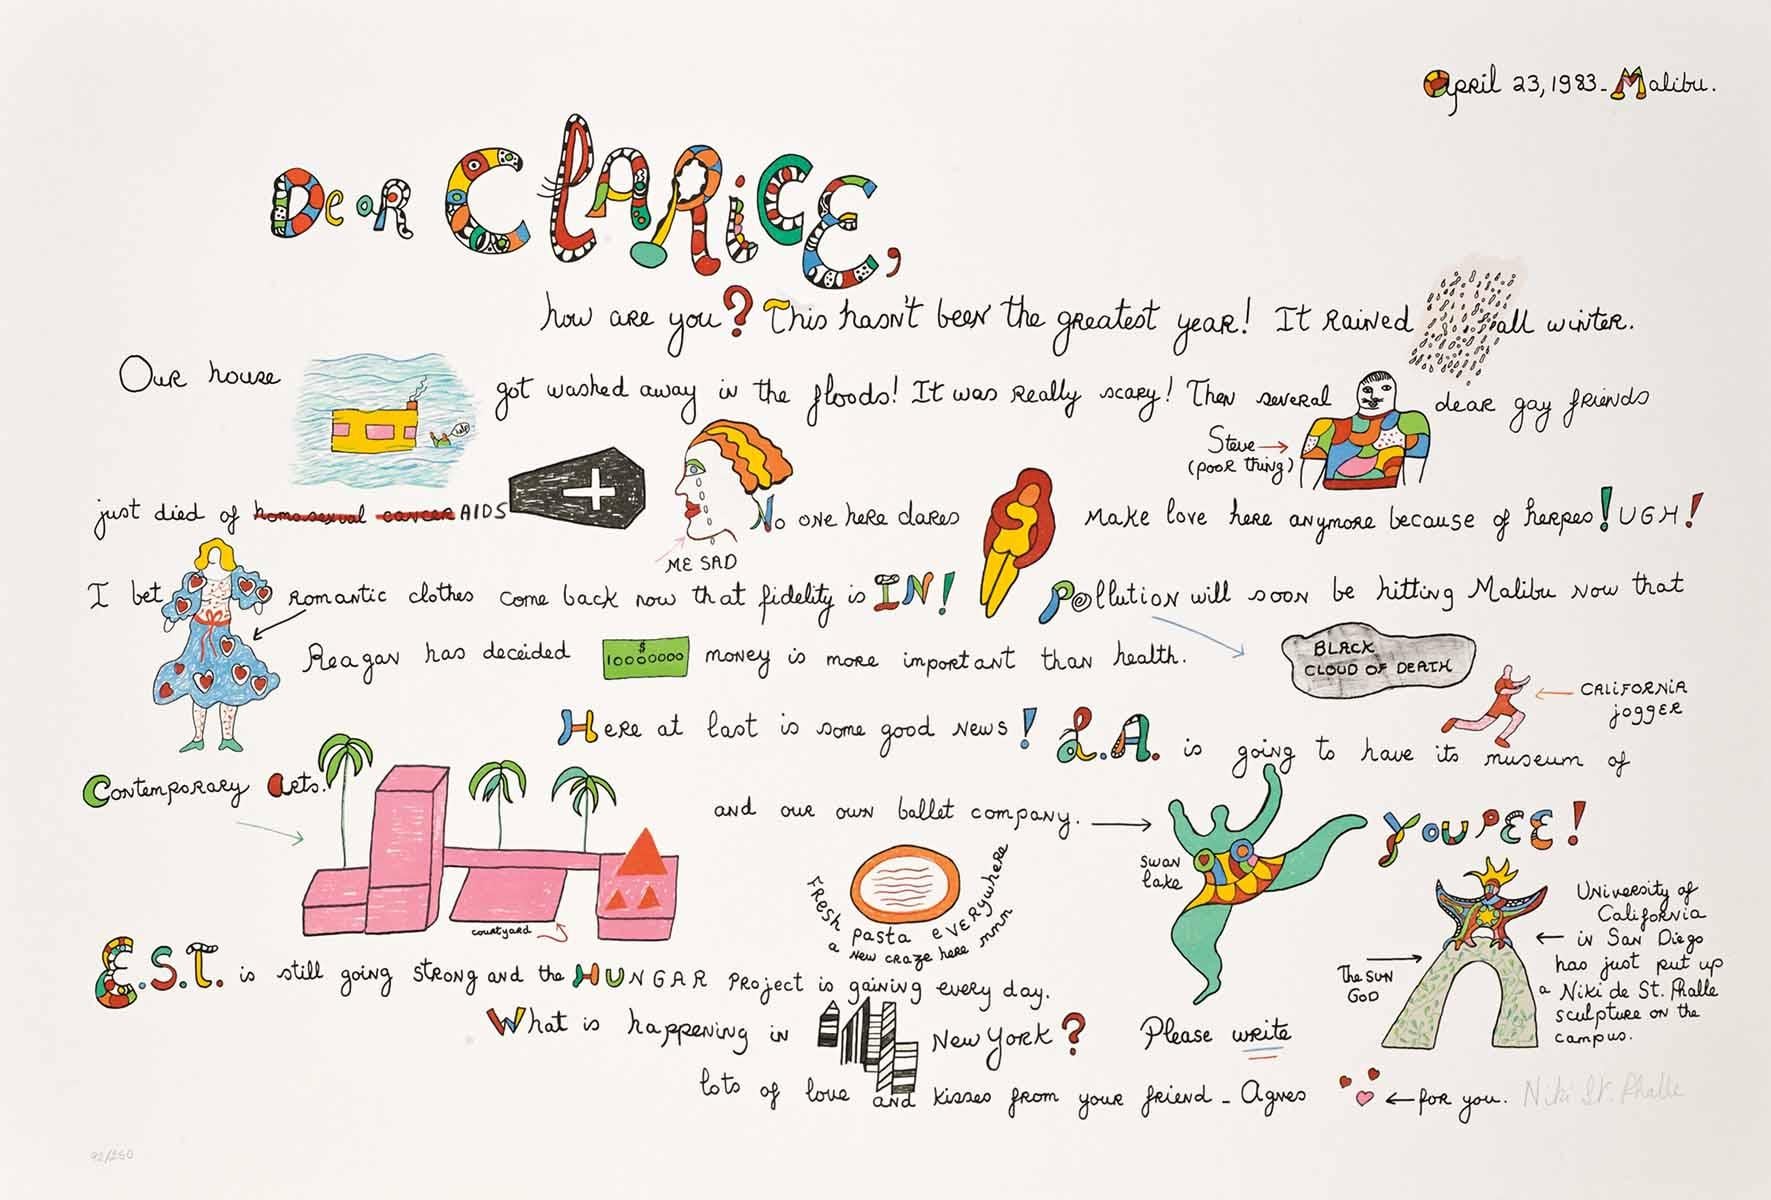 April 23, 1983 - Malibu.
Dear CLARICE,
how are you? This hasn't been the greatest year! It rained all winter.
Our house got washed away in the floods! It was really scary! Then several dear gay friends
help
Steve
(poor thing)
just died of homosexual cancer AIDS No one here dares make love here anymore because of herpes! UGH!
ME SAD
I bet romantic clothes come back now that fidelity is IN! Pollution will soon be hitting Malibu now that
Reagan has deceided $ 10000000 money is more important than health.
BLACK
CLOUD OF DEATH
CALIFORNIA
jogger
Here at last is some good news! L.A. is going to have its museum of
Contemporary Arts. and our own ballet company. YOUPEE!
courtyard
Fresh pasta everywhere
a new craze here mnnn
Swan
lake
The SUN
GOD
University of
California
in San Diego
has just put up
a Niki de St. Phalle
sculpture on the
campus.
E.S.T. is still going strong and the HUNGAR Project is gaining every day.
What is happening in New York? Please write
lots of love and kisses from your friend - Agnes for you. Niki St. Phalle
92/250